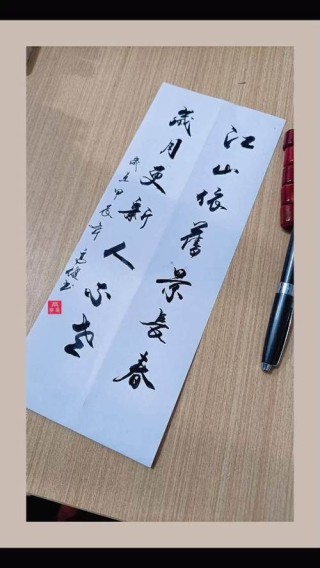 江山依舊景長春
歲月更新人不老
甲辰年